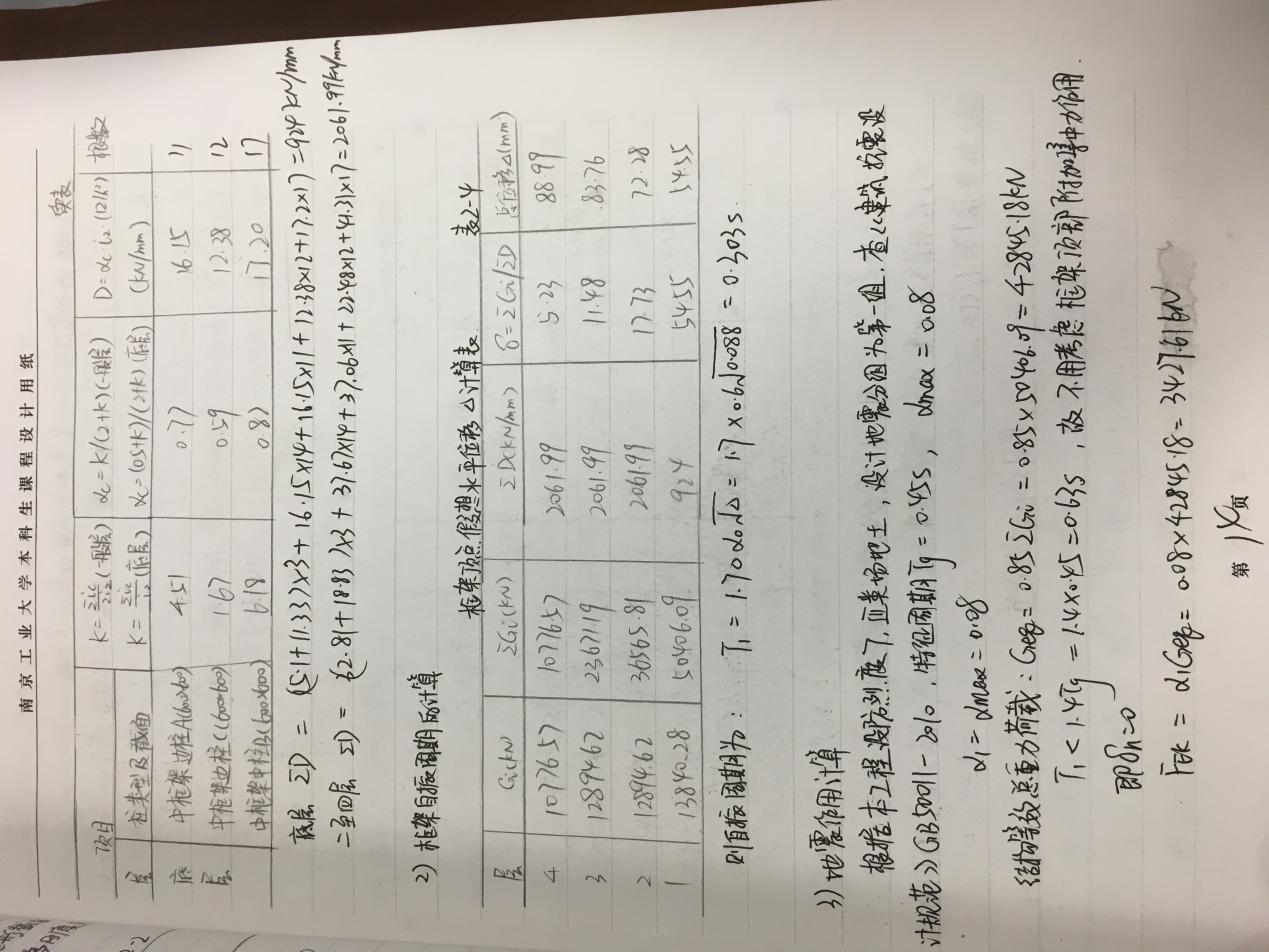 南京工业大学本科生课程设计用纸
续表
项目 K=Σic/2ic(一般层) αc=K/(2+K)(一般层) D=αc ic(12/h²) 根数
层 柱类型及截面 K=Σic/ic(底层) αc=(0.5+K)/(2+K)(底层) (kN/mm)
底 中框架边柱A(600x600) 4.51 0.77 16.15 11
层 中框架边柱C(600x600) 1.67 0.59 12.38 12
中框架中柱B(600x600) 6.18 0.82 17.20 17
底层 ΣD = (15.1+11.33)×3+16.15×14+16.15×11+12.38×12+17.2×17=924kN/mm
二至四层 ΣD = (32.81+18.83)×3+31.67×14+37.06×11+22.48×12+41.31×17=2061.99kN/mm
2)框架自振周期的计算
框架顶点假想水平位移Δ计算表 表2-4
层 Gi(kN) ΣGi(kN) ΣD(kN/mm) δ=ΣGi/ΣD 总位移Δ(mm)
4 10776.57 10776.57 2061.99 5.23 88.99
3 12894.62 23671.19 2061.99 11.48 83.76
2 12894.62 36565.81 2061.99 17.73 72.28
1 13840.28 50406.09 924 54.55 54.55
则自振周期为: T1=1.70α0√Δ=1.7×0.6√0.088=0.303s.
3)地震作用计算
根据本工程设防烈度7,Ⅲ类场地土,设计地震分组为第一组,查《建筑抗震设
计规范》GB50011-2010,特征周期Tg=0.45s, αmax=0.08
α1=αmax=0.08
结构等效总重力荷载:Geq=0.85ΣGi=0.85×50406.09=42845.18kN
T1<1.4Tg=1.4×0.45=0.63s,故不用考虑框架顶部附加集中力作用.
即δn=0
FEK=α1Geq=0.08×42845.18=3427.61kN
第 页